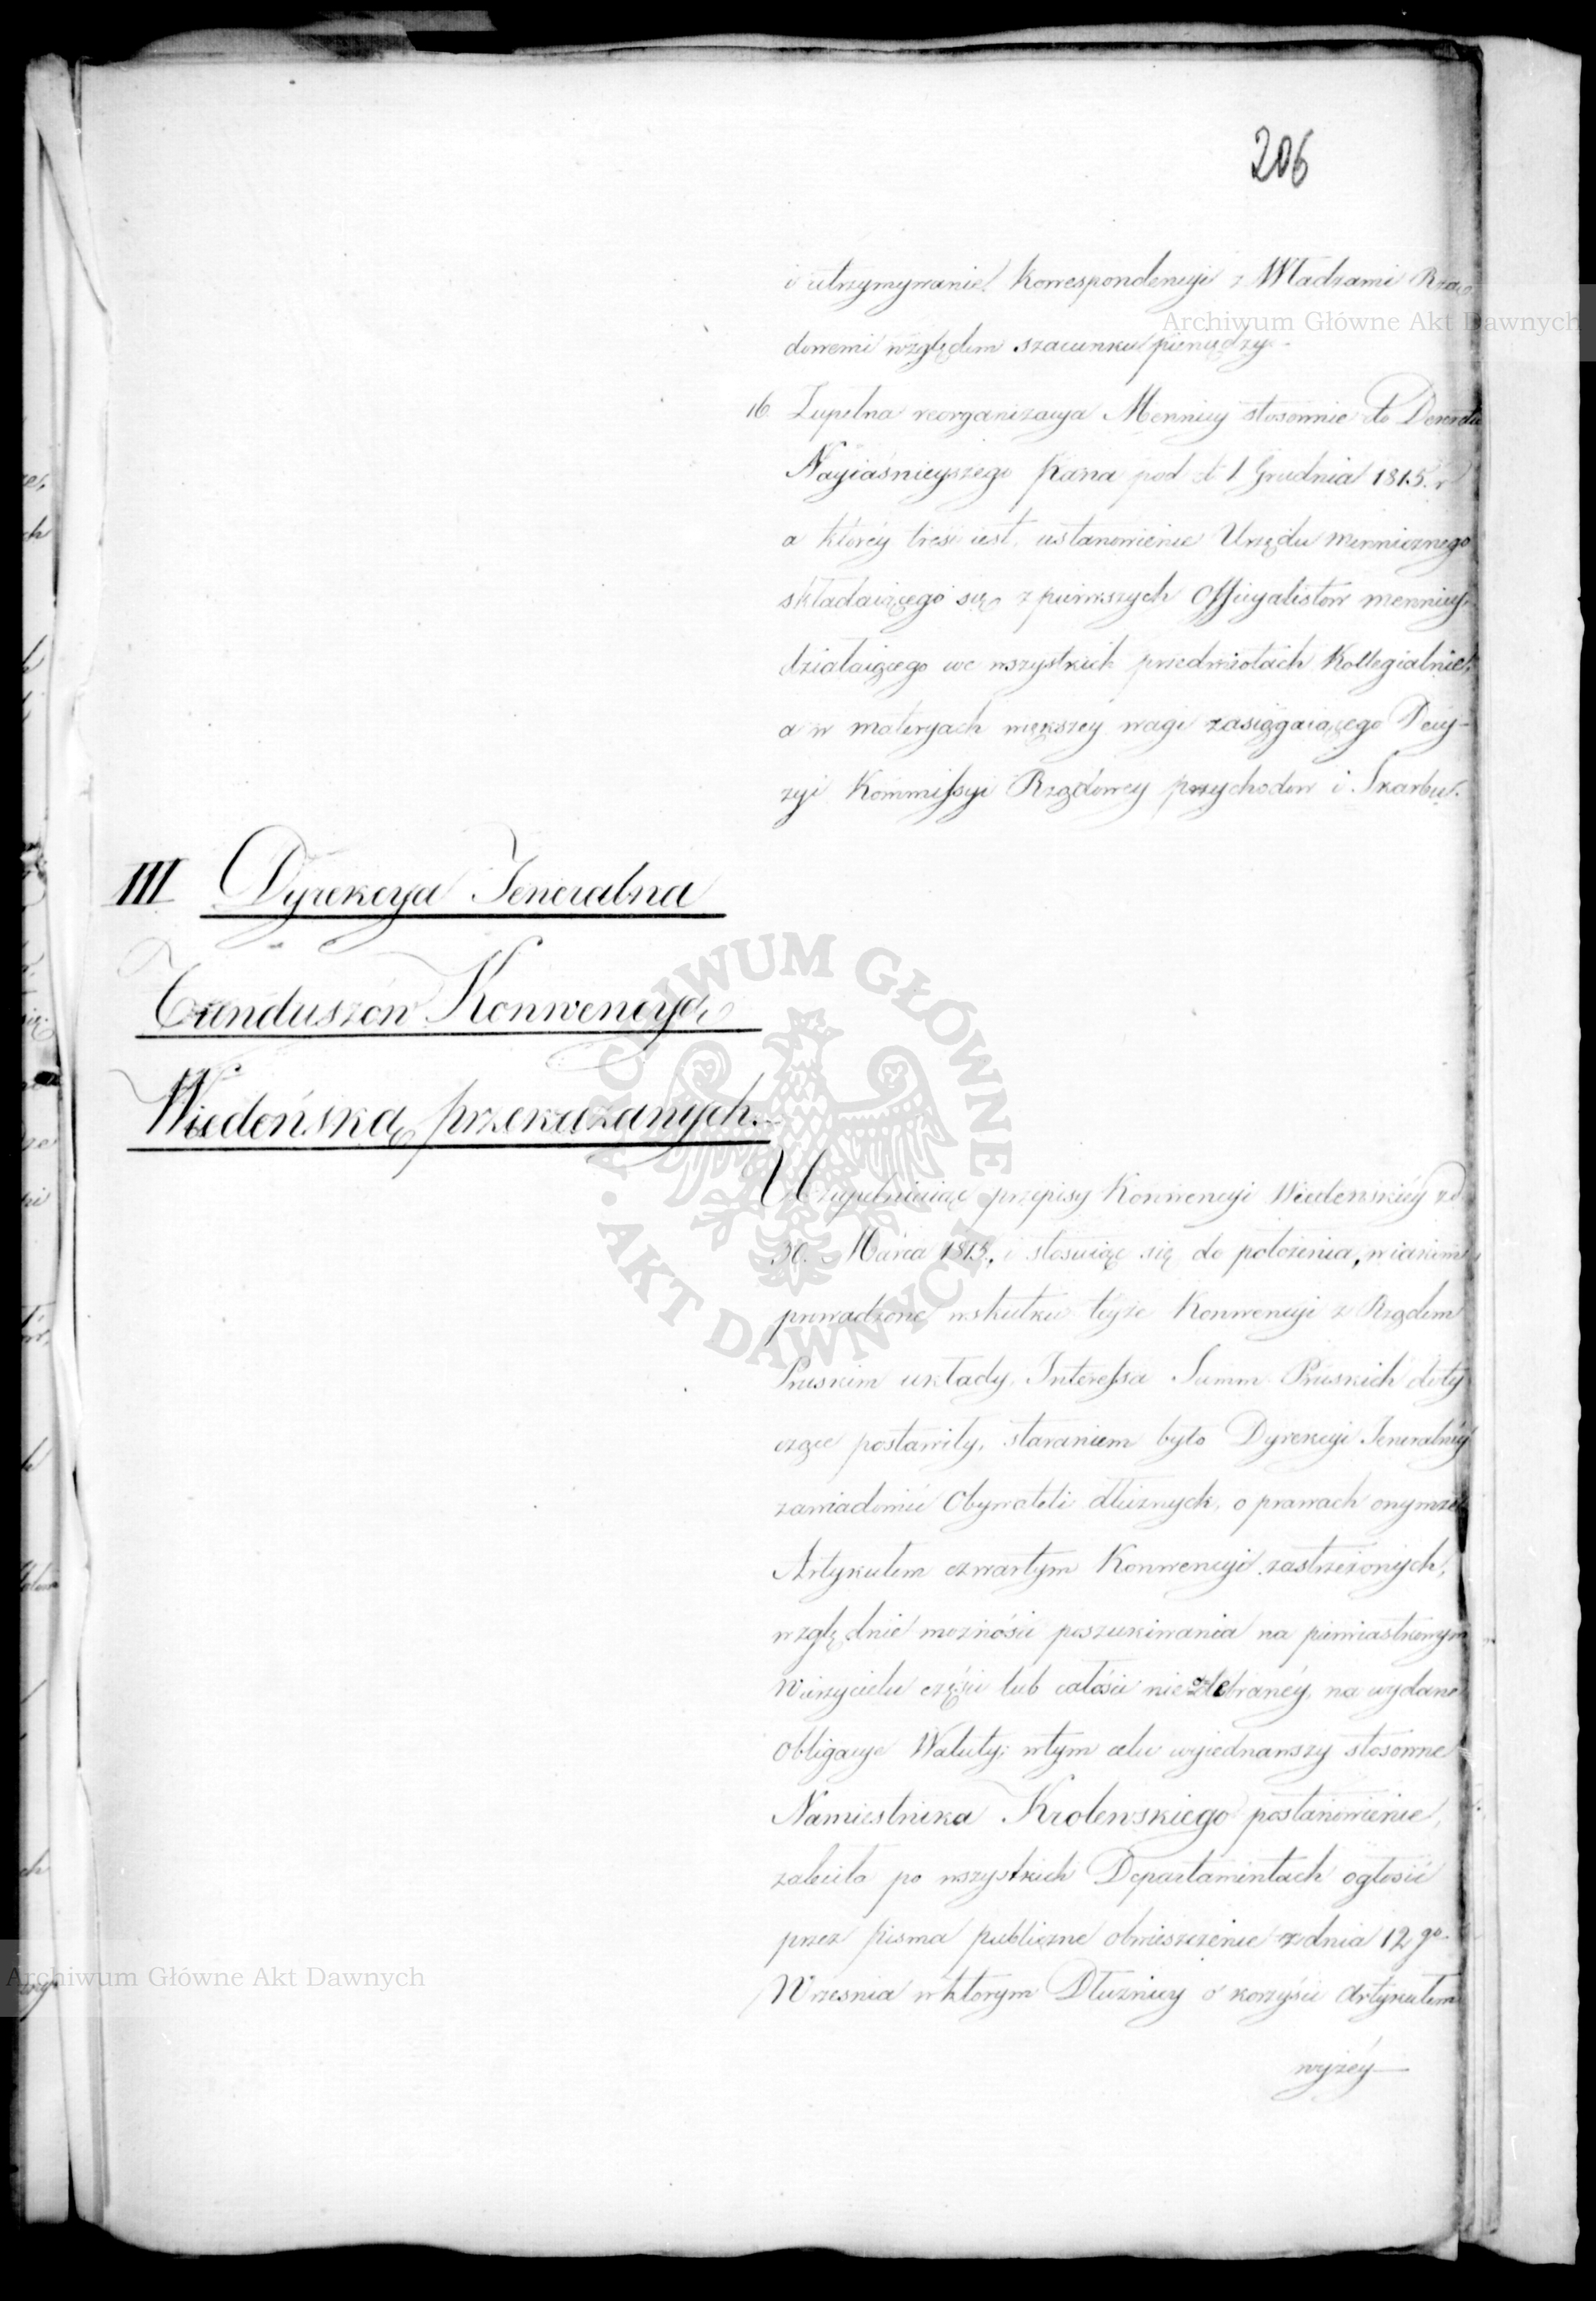 206
i utrzymywanie Korrespondencyi z Władzami Rzą=
dowemi względem szacunku pieniędzy.
16 Zupełna reorganizacya Mennicy stosownie do Dekretu
Nayiaśnieyszego Pana pod d. 1 Grudnia 1815. r
a którey treśc iest, ustanowienie Urzędu mennicznego
składaiącego się z pierwszych Officyalistów mennicy,
działaiącego we wszystkich przedmiotach Kollegialnie,
a w materyach większey wagi zasięgaiącego Decy-
zyi Kommissyi Rządowey przychodow i Skarbu.
III Dyrekcya Jeneralna
Funduszów Konwencyą
Wiedeńską przekazanych.
Uzupełniaiąc przepisy Konwencyi Wiedenskiey z d
30. Marca 1815, i stosuiąc się do położenia, w iakiem
prowadzone wskutku teyże Konwencyi z Rządem
Pruskim układy, Interessa Summ Pruskich doty
czące postawiły, staraniem było Dyrekcyi Jeneralney
zawiadomić Obywateli dłużnych, o prawach onymże
Artykułem czwartym Konwencyi zastrzeżonych,
względnie możności poszukiwania na pierwiastkowym
Wierzycielu części lub całości nieodebraney, na wydane
Obligacye Waluty; w tym celu wyiednawszy stosowne
Namiestnika Krolewskiego postanowienie,
zaleciła po wszystkich Departamentach ogłosić
przez pisma publiczne obwieszczenie z dnia 12go
Wrzesnia w ktorym Dłużnicy o korzyści Artykułem
wyżey
Archiwum Główne Akt Dawnych
Archiwum Główne Akt Dawnych
ARCHIWUM GŁÓWNE AKT DAWNYCH